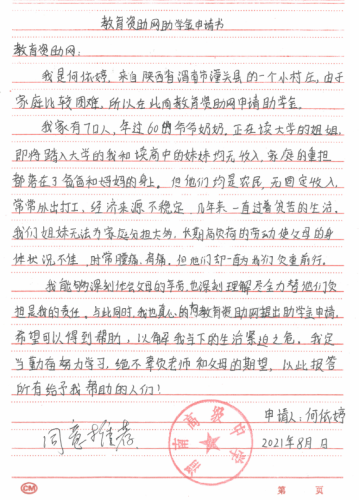 教育资助网助学金申请书
教育资助网：
我是何依婷，来自陕西省渭南市潼关县的一个小村庄，由于
家庭比较困难，所以在此向教育资助网申请助学金。
我家有7口人，年过60的爷爷奶奶，正在读大学的姐姐，
即将踏入大学的我和读高中的妹妹均无收入，家庭的重担
都落在了爸爸和妈妈的身上。但他们均是农民，无固定收入，
常常外出打工，经济来源不稳定，几年来一直过着贫苦的生活。
我们姐妹无法为家庭分担太多，长期高负荷的劳动使父母的身
体状况不佳，时常腰痛、肩痛。但他们却一直为我们负重前行。
我能够深刻体会父母的辛劳，也深刻理解尽全力替他们负
担是我的责任。与此同时，我也真心的向教育资助网提出助学金申请，
希望可以得到帮助，以解我当下的生活紧迫之危。我定
当勤奋努力学习，绝不辜负老师和父母的期望，以此报答
所有给予我帮助的人们！
申请人：何依婷
同意推荐
2021年8月 日
高级中学
CM
第 页